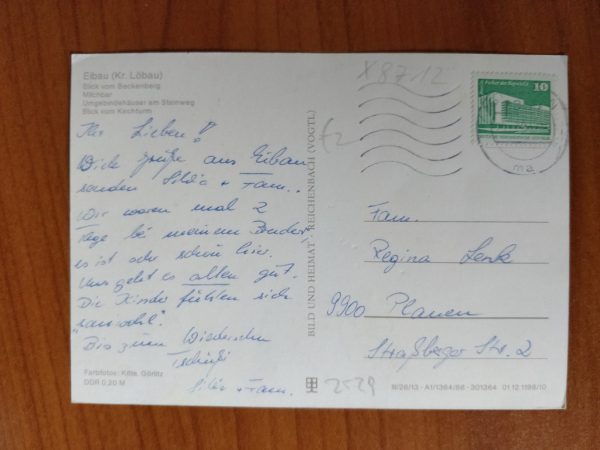 Eibau (Kr. Löbau)
Blick vom Beckenberg
Milchbar
Umgebindehäuser am Steinweg
Blick vom Kirchturm
Ihr Lieben!
Viele Grüße aus Eibau
senden Silvia + Fam..
Wir waren mal 2
Tage bei meinem Bruder,
es ist sehr schön hier.
Uns geht es allen gut.
Die Kinder fühlen sich
"sauwohl".
Bis zum Wiedersehn
Tschüß
Silvia + Fam.
Farbfotos: Kitte, Görlitz
DDR 0,20 M
BILD UND HEIMAT · REICHENBACH (VOGTL)
X 87.12
10
ma
Fam.
Regina Lenk
9900 Plauen
Straßberger Str. 2
2529
IV/26/13 · A1/1364/86 · 301364 01 12 1198/10